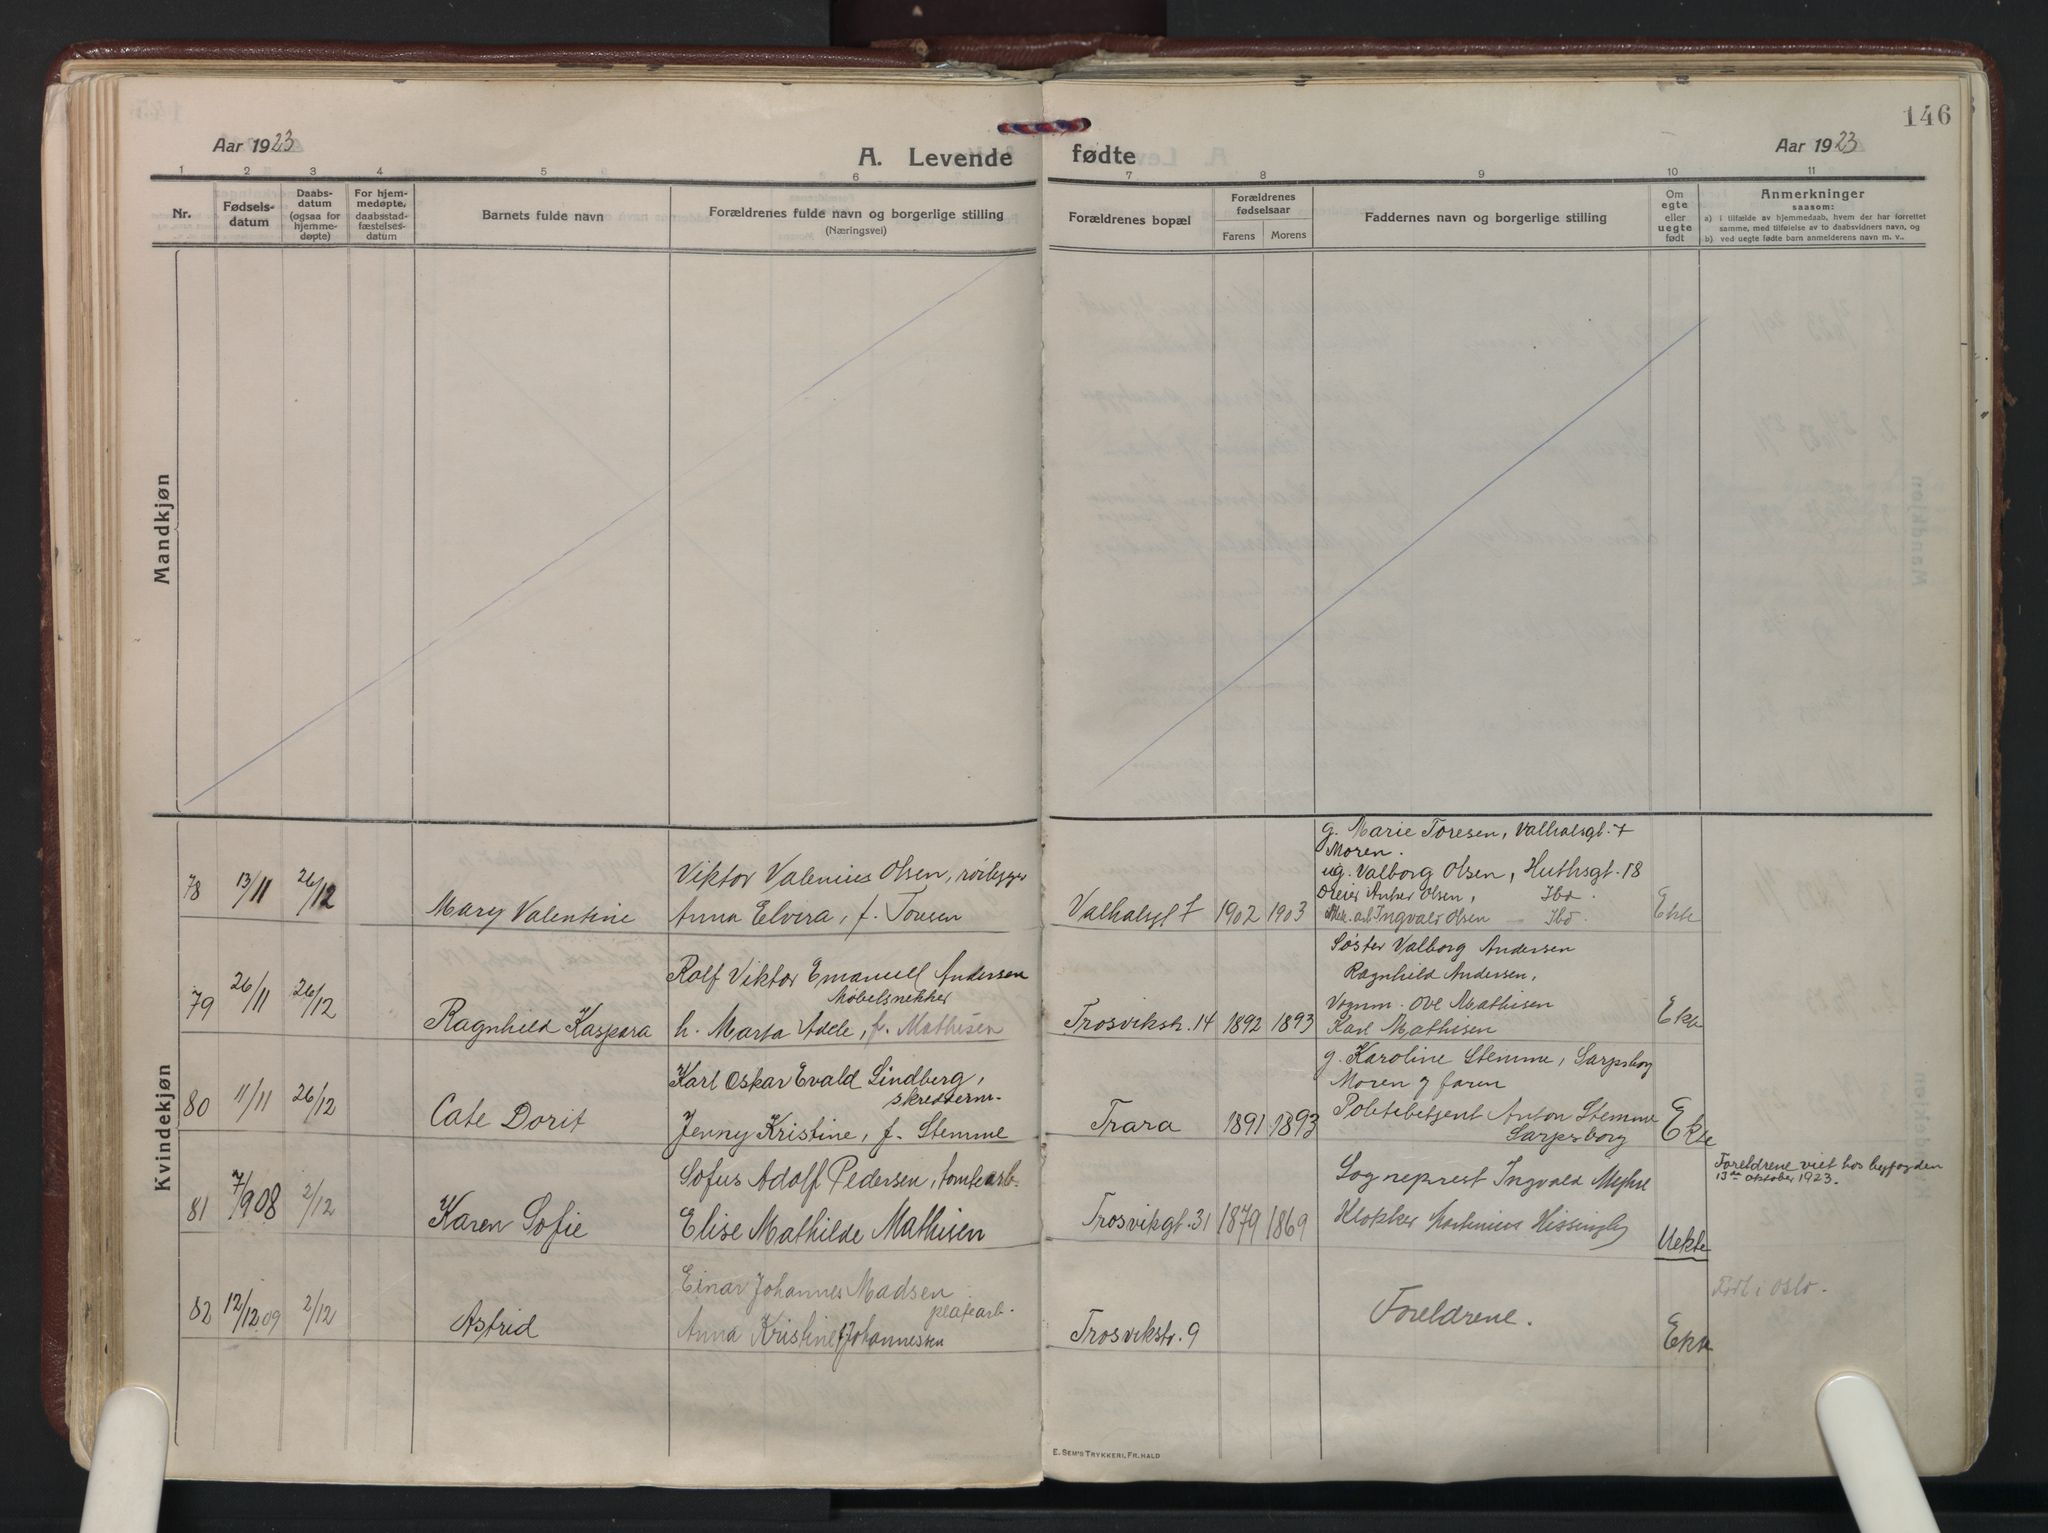 146
Aar 1923
A. Levende fødte
Aar 1923
1 2 3 4 5 6 7 8 9 10 11
Nr.
Fødsels-
datum
Daabs-
datum
(ogsaa for
hjemme-
døpte)
For hjem-
medøpte,
daabsstad-
fæstelses-
datum
Barnets fulde navn
Forældrenes fulde navn og borgerlige stilling
(Næringsvei)
Forældrenes bopæl
Forældrenes
fødselsaar
Farens Morens
Faddernes navn og borgerlige stilling
Om
egte
eller
uegte
født
Anmerkninger
saasom:
a) i tilfælde av hjemmedaab, hvem der har forrettet
samme, med tilføielse av to daabsvidners navn, og
b) ved uegte fødte barn anmelderens navn m. v..
Mandkjøn
Kvindekjøn
78 13/11 26/12
Mary Valentine
Viktor Valenius Olsen, rørlegger
Anna Elvira, f. Toresen
Valhalsgt 7 1902 1903
g. Marie Toresen, Valhalsgt. 7
Moren.
ug. Valborg Olsen, Huthsgt. 18
Dreier Anker Olsen, Ibd.
Mek. arb Ingvald Olsen Ibd.
Ekte
79 26/11 26/12
Ragnhild Kaspara
Rolf Viktor Emanuel Andersen
Møbelsnekker
h. Marta Adele, f. Mathisen
Trosvikstr. 14 1892 1893
Søster Valborg Andersen
Ragnhild Andersen,
Vognm. Ove Mathisen
Karl Mathisen
Ekte
80 11/11 26/12
Cate Dorit
Karl Oskar Evald Lindberg,
skrædderm.
Jenny Kristine, f. Stemme
Trara 1891 1893
g. Karoline Stemme, Sarpsborg
Moren og faren
Politibetjent Anton Stemme
Sarpsborg
Ekte
81 7/9 08 2/12
Karen Sofie
Sofus Adolf Pedersen, tomtearb.
Elise Mathilde Mathisen
Trosvikgt. 31 1879 1869
Sogneprest Ingvald Myhre
Klokker Martinius Hissingby
Uekte
Foreldrene viet hos byfogden
13de oktober 1923.
82 12/12 09 2/12
Astrid
Einar Johannes Madsen
platearb.
Anna Kristine f Johannessen
Trosvikstr. 9
Foreldrene.
Ekte
Født i Oslo.
E. SEM'S TRYKKERI, FR. HALD